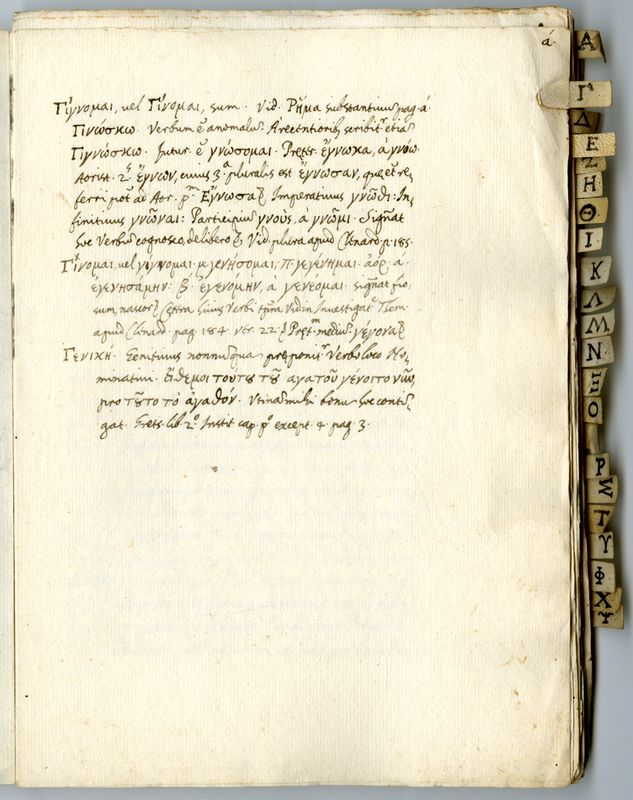 ά.
Γίγνομαι, vel Γίνομαι, sum. Vid. Ρῆμα substantivu pag. ά.
Γινώσκω. Verbum ē anomalu. A recentiorib. scribitr etiā
Γιγνώσκω. futur. ē γνώσομαι. Præter. ἔγνωκα, à γνόω.
Aorist. 2.s ἔγνων, cuius 3.a pluralis est ἔγνωσαν, quæ et re,
ferri pot ad Aor. pm. Εγνωσα} Imperatiuus γνῶθι: In,
finitiuus γνῶναι: Participiu γνούς, à γνῶμι. Signat
hoc Verbu cognosco, delibero } Vid. plura apud Clenard. p. 185.
Γίνομαι, vel γίγνομαι. μ. γενήσομαι, π. γεγένημαι. ἀόρ. ά.
ἐγενησάμην. β. ἐγενόμην, à γενέομαι. signat fio,
sum, nascor } Cetera huius Verbi Vid. in Investigat. Them.
apud Clenard. pag. 184. ver. 22. } Prętm. mediu. γέγονα}
Γενική. Genitiuus nonnunqua preponitr Verbo loco No,
minatiui. Είθε μοι τούτου τοῦ αγαθοῦ γένοιτο νῦν,
pro τοῦτο τὸ ἀγαθόν. Vtina mihi bonu hoc contin,
gat. Grets. lib. 2.o Instit. cap. p.o except. 4. pag. 3.
Α
Γ
Δ
Ε
Ζ
Η
Θ
Ι
Κ
Λ
Μ
Ν
Ξ
Ο
Ρ
Σ
Τ
Υ
Φ
Χ
Ψ